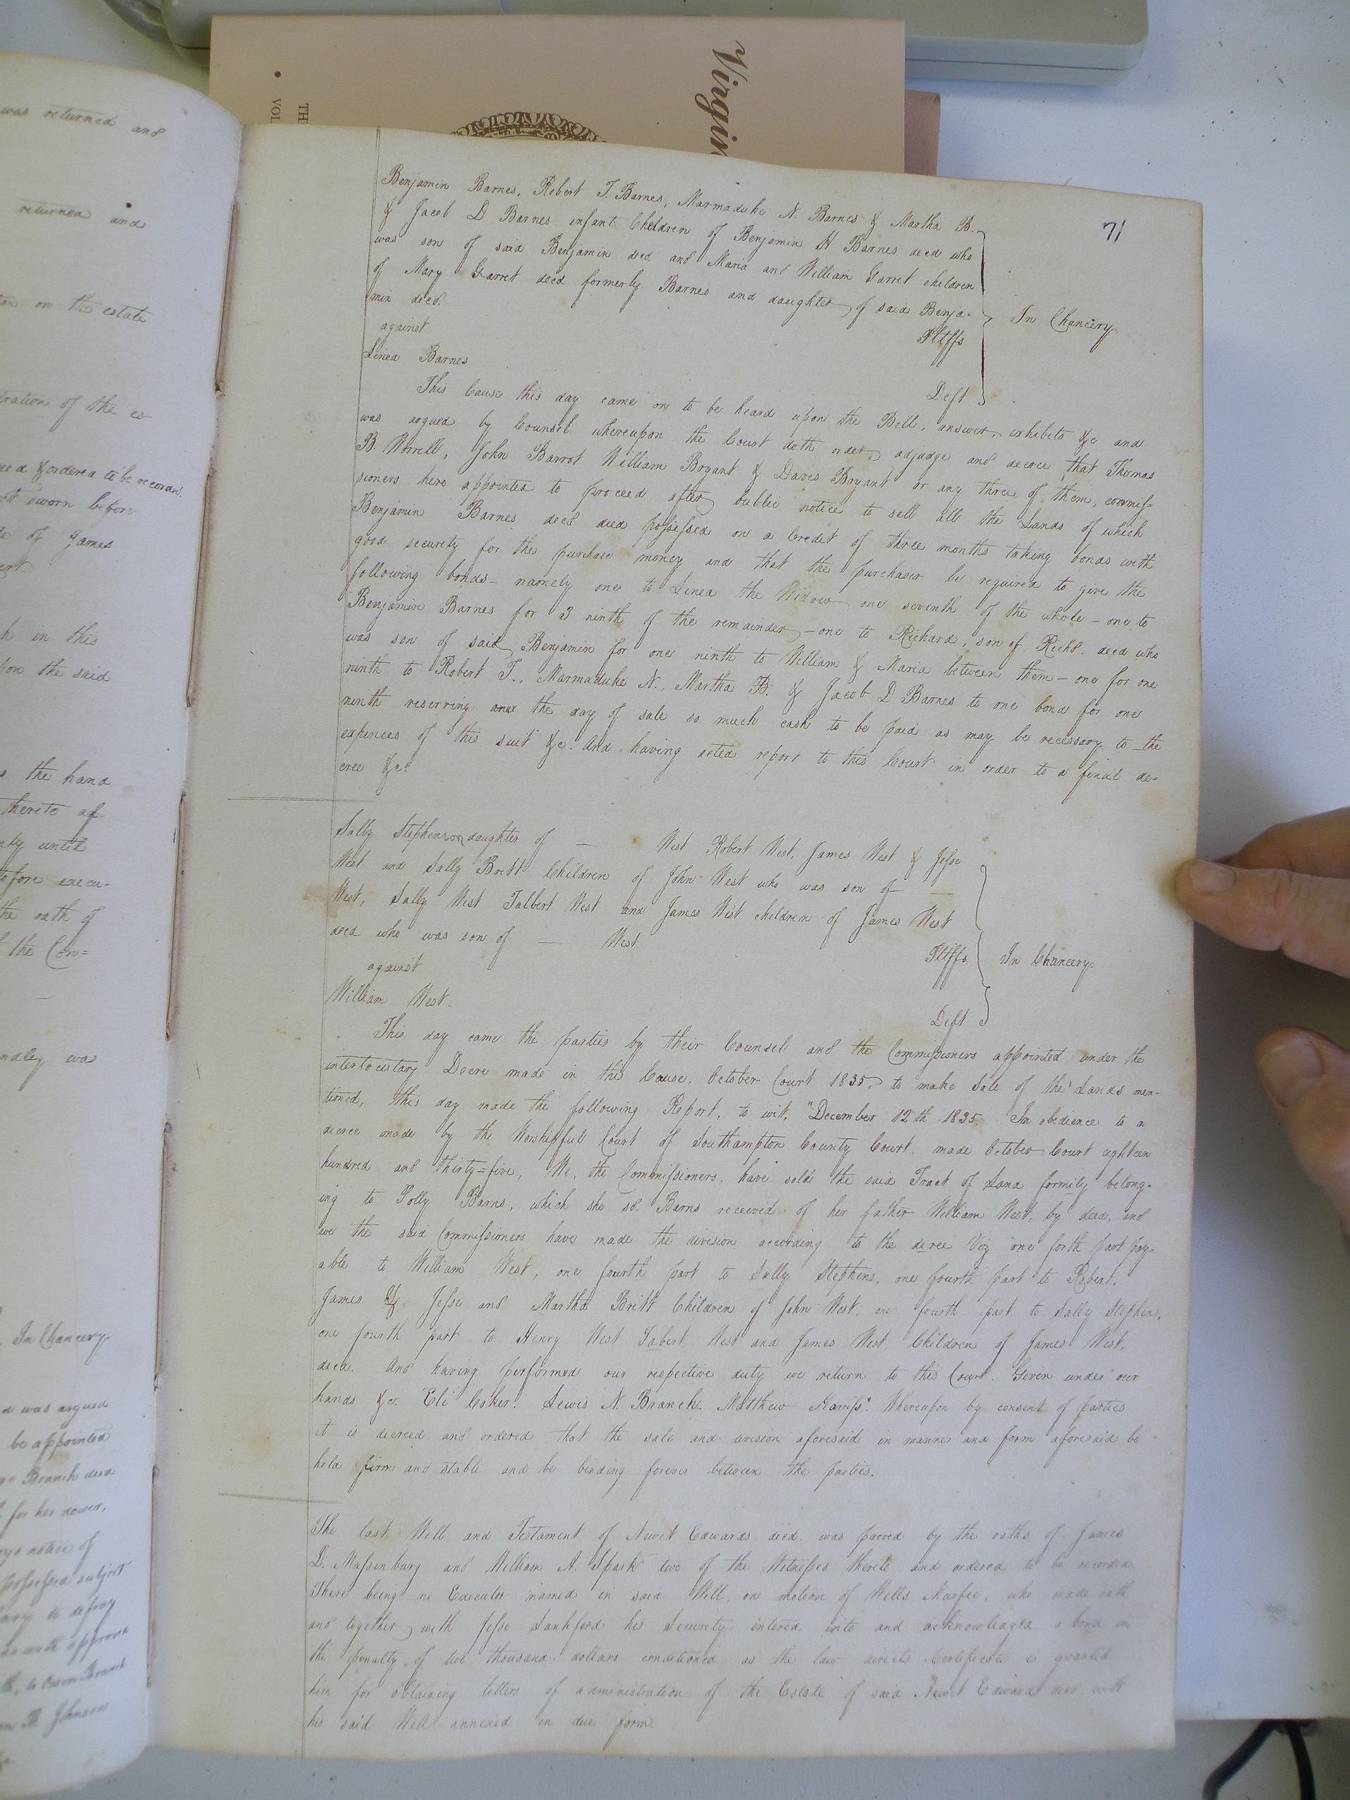 Virgin
TH
VOL
was returned and
returned and
on on the estate
tration of the es
ed & ordered to be record.
sworn before
of James
h in this
pon the said
the hand
thereto af
nty until
efore execu-
the oath of
the Con=
ndley was
In Chancery.
d was argued
be appointed
Branch decd
for her dower,
notice of
possessed subject
to defray
approved
to Branch
B. Johnson
71
Benjamin Barnes, Robert T. Barnes, Marmaduke N. Barnes & Martha B.
& Jacob D Barnes infant Children of Benjamin H Barnes decd who
was son of said Benjamin decd and Maria and William Garret children
of Mary Garret decd formerly Barnes and daughter of said Benja-
min decd. Pltffs
against
Linea Barnes
Deft
In Chancery.
This Cause this day came on to be heard upon the Bill, answer, exhibits &c and
was argued by Counsel whereupon the Court doth order, adjudge and decree that Thomas
B. Worrell, John Barrot William Bryant & Davis Bryant or any three of them, commis-
sioners here appointed to proceed after public notice to sell all the Lands of which
Benjamin Barnes decd died possessed on a Credit of three months taking bonds with
good security for the purchase money and that the purchaser be required to give the
following bonds - namely one to Linea the Widow one seventh of the whole - one to
Benjamin Barnes for 3 ninth of the remainder - one to Richard, son of Richd. decd who
was son of said Benjamin for one ninth to William & Maria between them - one for one
ninth to Robert T., Marmaduke N., Martha B. & Jacob D Barnes to one bond for one
ninth reserving the day of sale so much cash to be paid as may be necessary to the
expences of this suit &c. And having acted report to this Court in order to a final de-
cree &c.
Sally Stephenson daughter of — West Robert West, James West & Jesse
West and Sally Britt Children of John West who was son of —
West, Sally West Talbert West and James West children of James West
decd who was son of — West
Pltffs
against
William West.
Deft
In Chancery.
This day came the parties by their Counsel and the Commissioners appointed under the
interlocutary Decre made in this Cause, October Court 1835, to make Sale of the Lands men-
tioned, this day made the following Report, to wit, "December 12th 1835. In obedience to a
decree made by the Worshipfull Court of Southampton County Court, made October Court eighteen
hundred and thirty=five, We, the Commissioners, have sold the said Tract of Land formily belong-
ing to Polly Barns, which she sd. Barns received of her father William West, by deed, and
we the said Commissioners have made the division according to the decree Viz one forth part pay-
able to William West, one fourth part to Sally Stephens, one fourth part to Robert,
James & Jesse and Martha Britt Children of John West, on fourth part to Sally Stephens,
one fourth part to Henry West Tabert West and James West Children of James West,
decd. And having performed our respective duty we return to this Court. Given under our
hands &c. Eli Coker. Lewis N. Branch. Matthew". Whereupon by consent of parties
it is decreed and ordered that the sale and division aforesaid in manner and form aforesaid be
held firm and stable and be binding forever between the parties.
The last Will and Testament of Newit Edwards decd was proved by the oaths of James
D. Massenburg and William A. Spark two of the Witnesses thereto and ordered to be recorded
There being no Executor named in said Will, on motion of Wells, who made oath
and together with Jesse Lankford his Security entered into and acknowledged a bond in
the penalty of two thousand dollars conditioned as the law directs Certificate is granted
him for obtaining letters of administration of the Estate of said Newit Edwards decd with
his said Will annexed in due form.